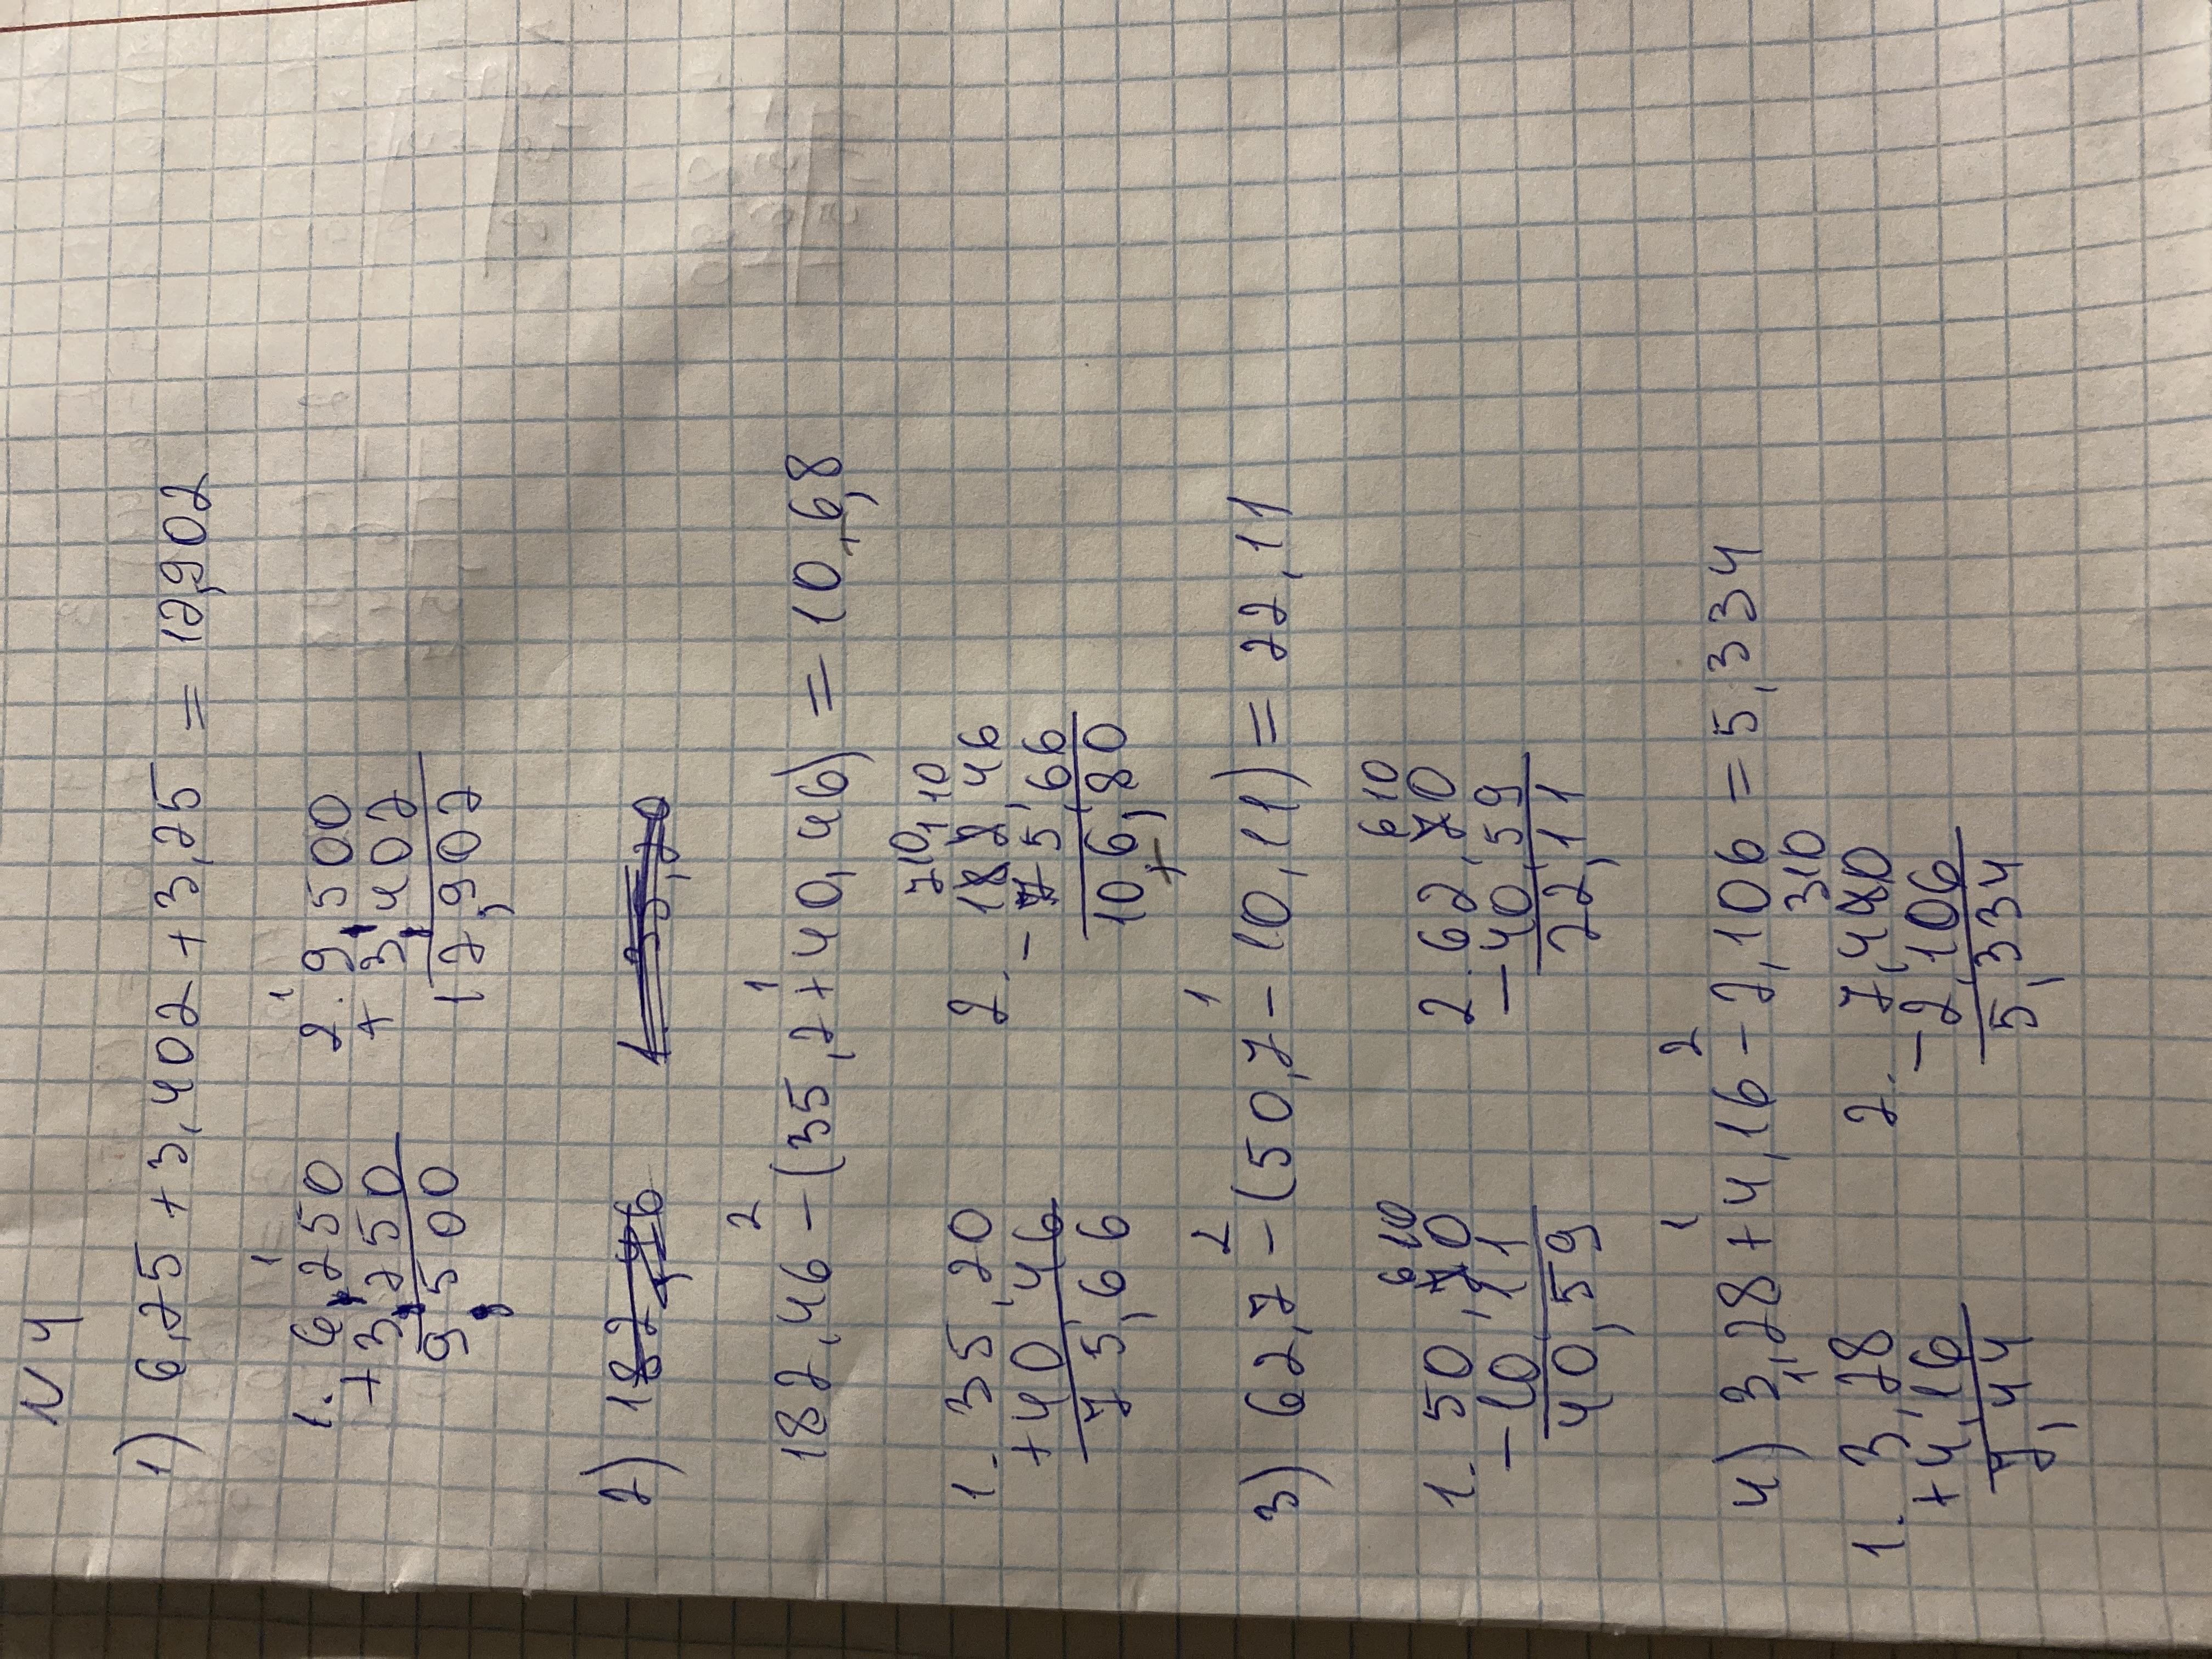 N 4
1) 6,25 + 3,402 + 3,25 = 12,902
1
1. 6,250
+3,250
9,500
1
2. 9,500
+ 3,402
12,902
2) 182,46
2 1
182,46 - (35,2 + 40,46) = 10 6,8
1. 35,20
+40,46
75,66
7 10, 10
2. - 182 46
75,66
106,80
2 1
3) 62,7 - (50,7 - 10,11) = 22,11
6 10
1. 50,70
-10,11
40,59
6 10
2. 62,70
-40,59
22,11
1 2
4) 3,28 + 4,16 - 2,106 = 5,334
1
1. 3,28
+4,16
7,44
3 10
2. 7,440
-2,106
5,334